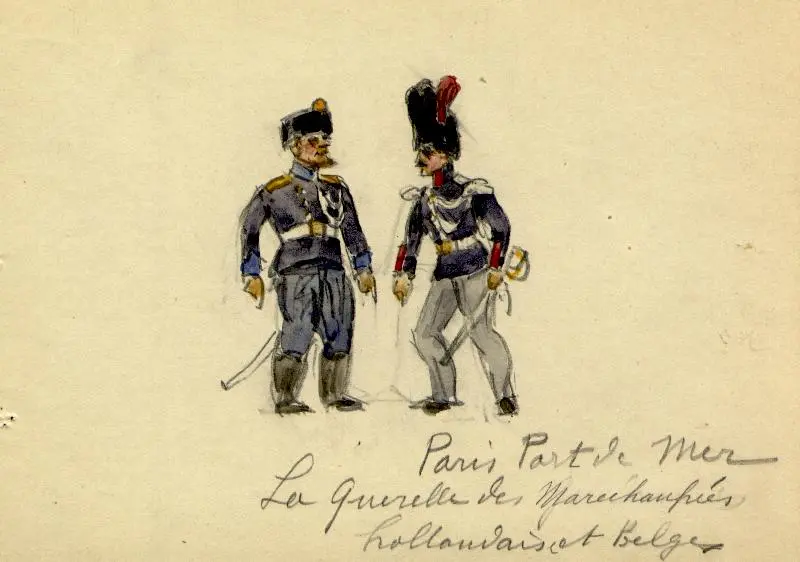 Paris Port de Mer
La Querelle des Marechaussées
hollandaise et Belge